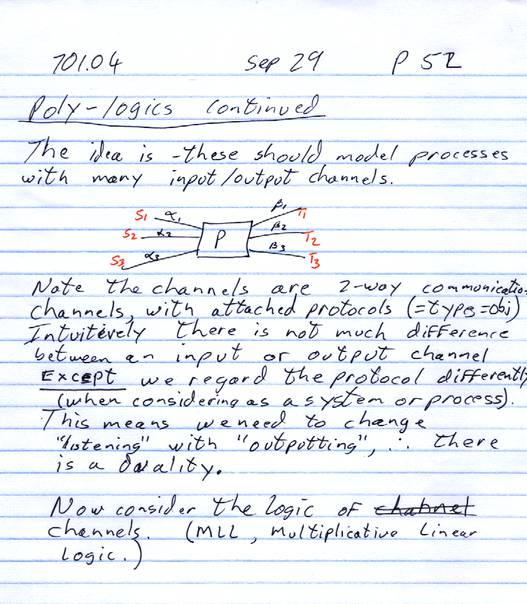 701.04 Sep 29 P 52
Poly-logics continued
The idea is -these should model processes
with many input/output channels.
S1 α1 β1 T1
S2 α2 P β2 T2
S3 α3 β3 T3
Note the channels are 2-way communication
channels, with attached protocols (=types=obj)
Intuitively there is not much difference
between an input or output channel
EXCEPT we regard the protocol differently
(when considering as a system or process).
This means we need to change
"listening" with "outputting", ∴ there
is a duality.
Now consider the logic of channel
channels. (MLL, Multiplicative Linear
Logic.)